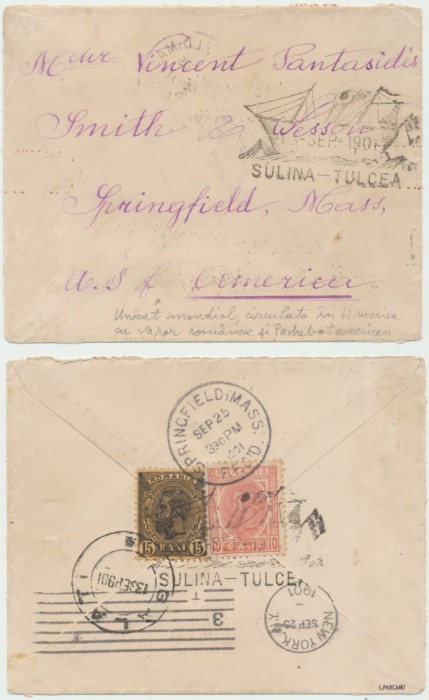 Mdme Vincent Pantasidès
Smith & Wesson
13-SEP-1901
SULINA-TULCEA
Springfield, Mass,
U.S of America
Unicat mondial, circulată în America
cu vapor românesc și Pachebot american
SPRINGFIELD, MASS.
SEP 25
330PM
1901
REC'D.
ROMANIA
15 BANI 15
10 BANI 10
SULINA-TULCE
GALATI
13SEP901
T
3
NEW YORK, N.Y.
SEP 25
1901
L.PASCANU